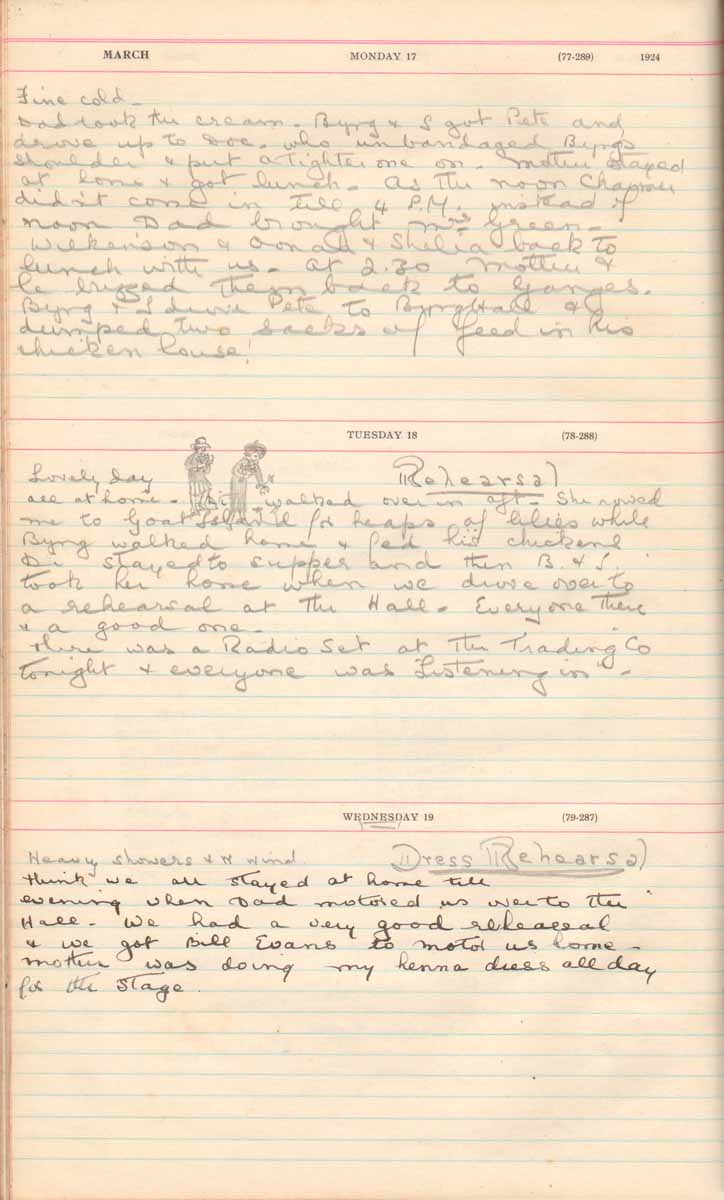 MARCH MONDAY 17 (77-289) 1924
Fine cold -
Dad took the cream. Byrg & I got Pete and
drove up to Doc. who unbandaged Byrgs
shoulder & put a tighter one on. Mother stayed
at home & got lunch. As the noon Charmer
didn't come in till 4 P.M. instead of
noon Dad brought Mrs Green -
Wilkinson & & Shelia back to
lunch with us. At 2.30 Mother &
he brigged them back to Ganges.
Byrg & I drove Pete to Byrghall &
dumped two sacks of feed in his
chicken house!
TUESDAY 18 (78-288)
Lovely day Rehearsal
all at home. Di walked over in aft. She rowed
me to Goat Isla'd for heaps of lilies while
Byrg walked home & fed his chickens
Di stayed to supper and then B. & I.
took her home when we drove over to
a rehearsal at the Hall. Everyone there
& a good one.
There was a Radio Set at The Trading Co
tonight & everyone was "Listening in" -
WEDNESDAY 19 (79-287)
Heavy showers & N wind. Dress Rehearsal
think we all stayed at home till
evening when Dad motored us over to the
Hall. We had a very good rehearsal
& we got Bill Evans to motor us home -
Mother was doing my henna dress all day
for the stage.